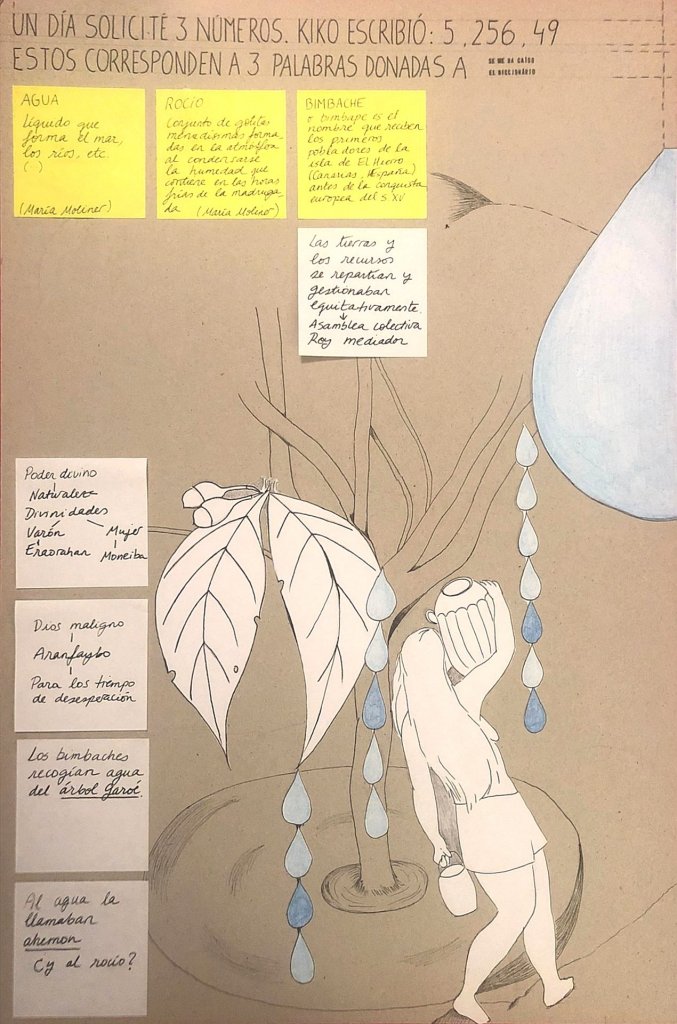 UN DÍA SOLICITÉ 3 NÚMEROS. KIKO ESCRIBIÓ: 5, 256, 49
ESTOS CORRESPONDEN A 3 PALABRAS DONADAS A
SE ME HA CAÍDO
EL DICCIONARIO
AGUA
Líquido que
forma el mar,
los ríos, etc.
(María Moliner)
ROCÍO
Conjunto de gotitas
menudísimas forma-
das en la atmósfera
al condensarse
la humedad que
contiene en las horas
frías de la madruga-
da (María Moliner)
BIMBACHE
o bimbape es el
nombre que reciben
los primeros
pobladores de la
isla de El Hierro
(Canarias, España)
antes de la conquista
europea del S XV
Las tierras y
los recursos
se repartían y
gestionaban
equitativamente.
Asamblea colectiva
Rey mediador
Poder divino
Naturaleza
Divinidades
Varón Mujer
Eraorahan Moneiba
Dios maligno
Aranfaybo
Para los tiempo
de desesperación
Los bimbaches
recogían agua
del árbol Garoé.
Al agua la
llamaban
ahemon
¿y al rocío?